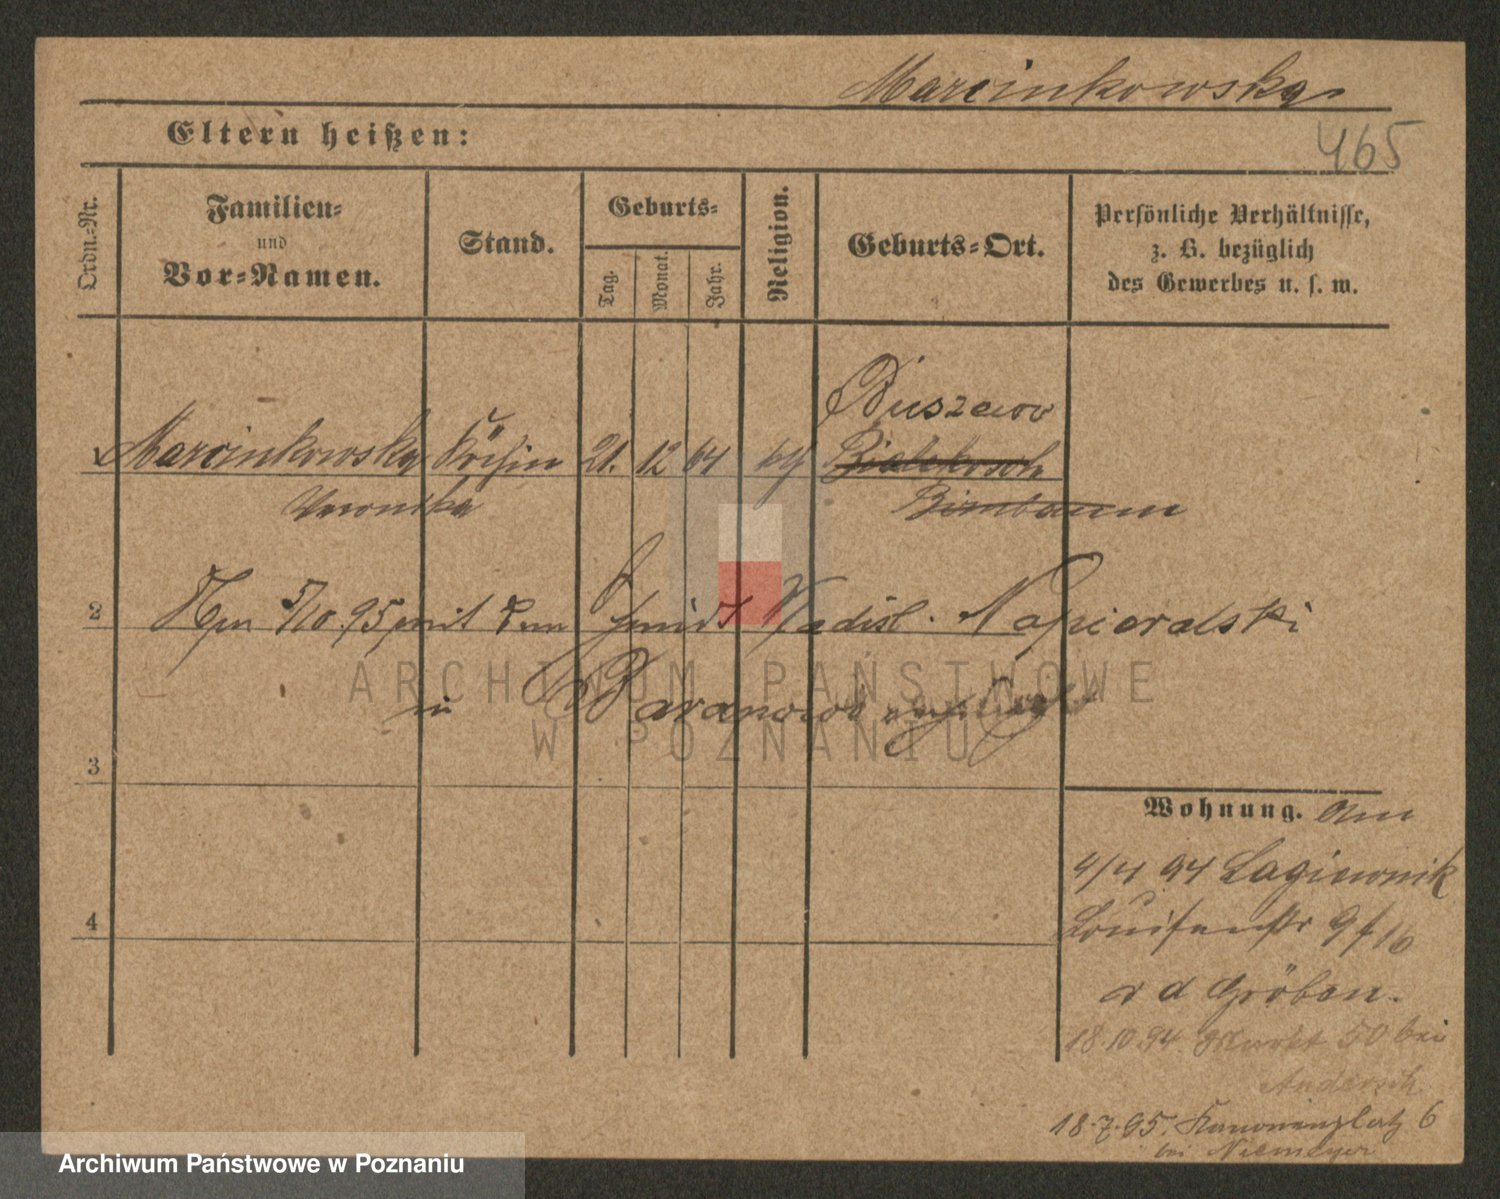 Marcinkowska
465
Eltern heißen:
Ordn.-Nr.
Familien-
und
Vor-Namen.
Stand.
Geburts-
Tag.
Monat.
Jahr.
Religion.
Geburts-Ort.
Persönliche Verhältnisse,
z. B. bezüglich
des Gewerbes u. s. w.
Buszewo
1 Marcinkowska Köchin 21. 12 64 kth Bialokosch
Veronika Birnbaum
2 5/10.95 mit dem Schmidt Wladisl. Napieralski
in Baranowo
3
4
Wohnung. Am
4/4 94 Lagiewnik
Louisenstr 9 f 16
v d Gröben.
18.10.94. 50 bei
Andersch
18.7.95. Kanonenplatz 6
bei Niemeyer
ARCHIWUM PAŃSTWOWE
W POZNANIU
Archiwum Państwowe w Poznaniu